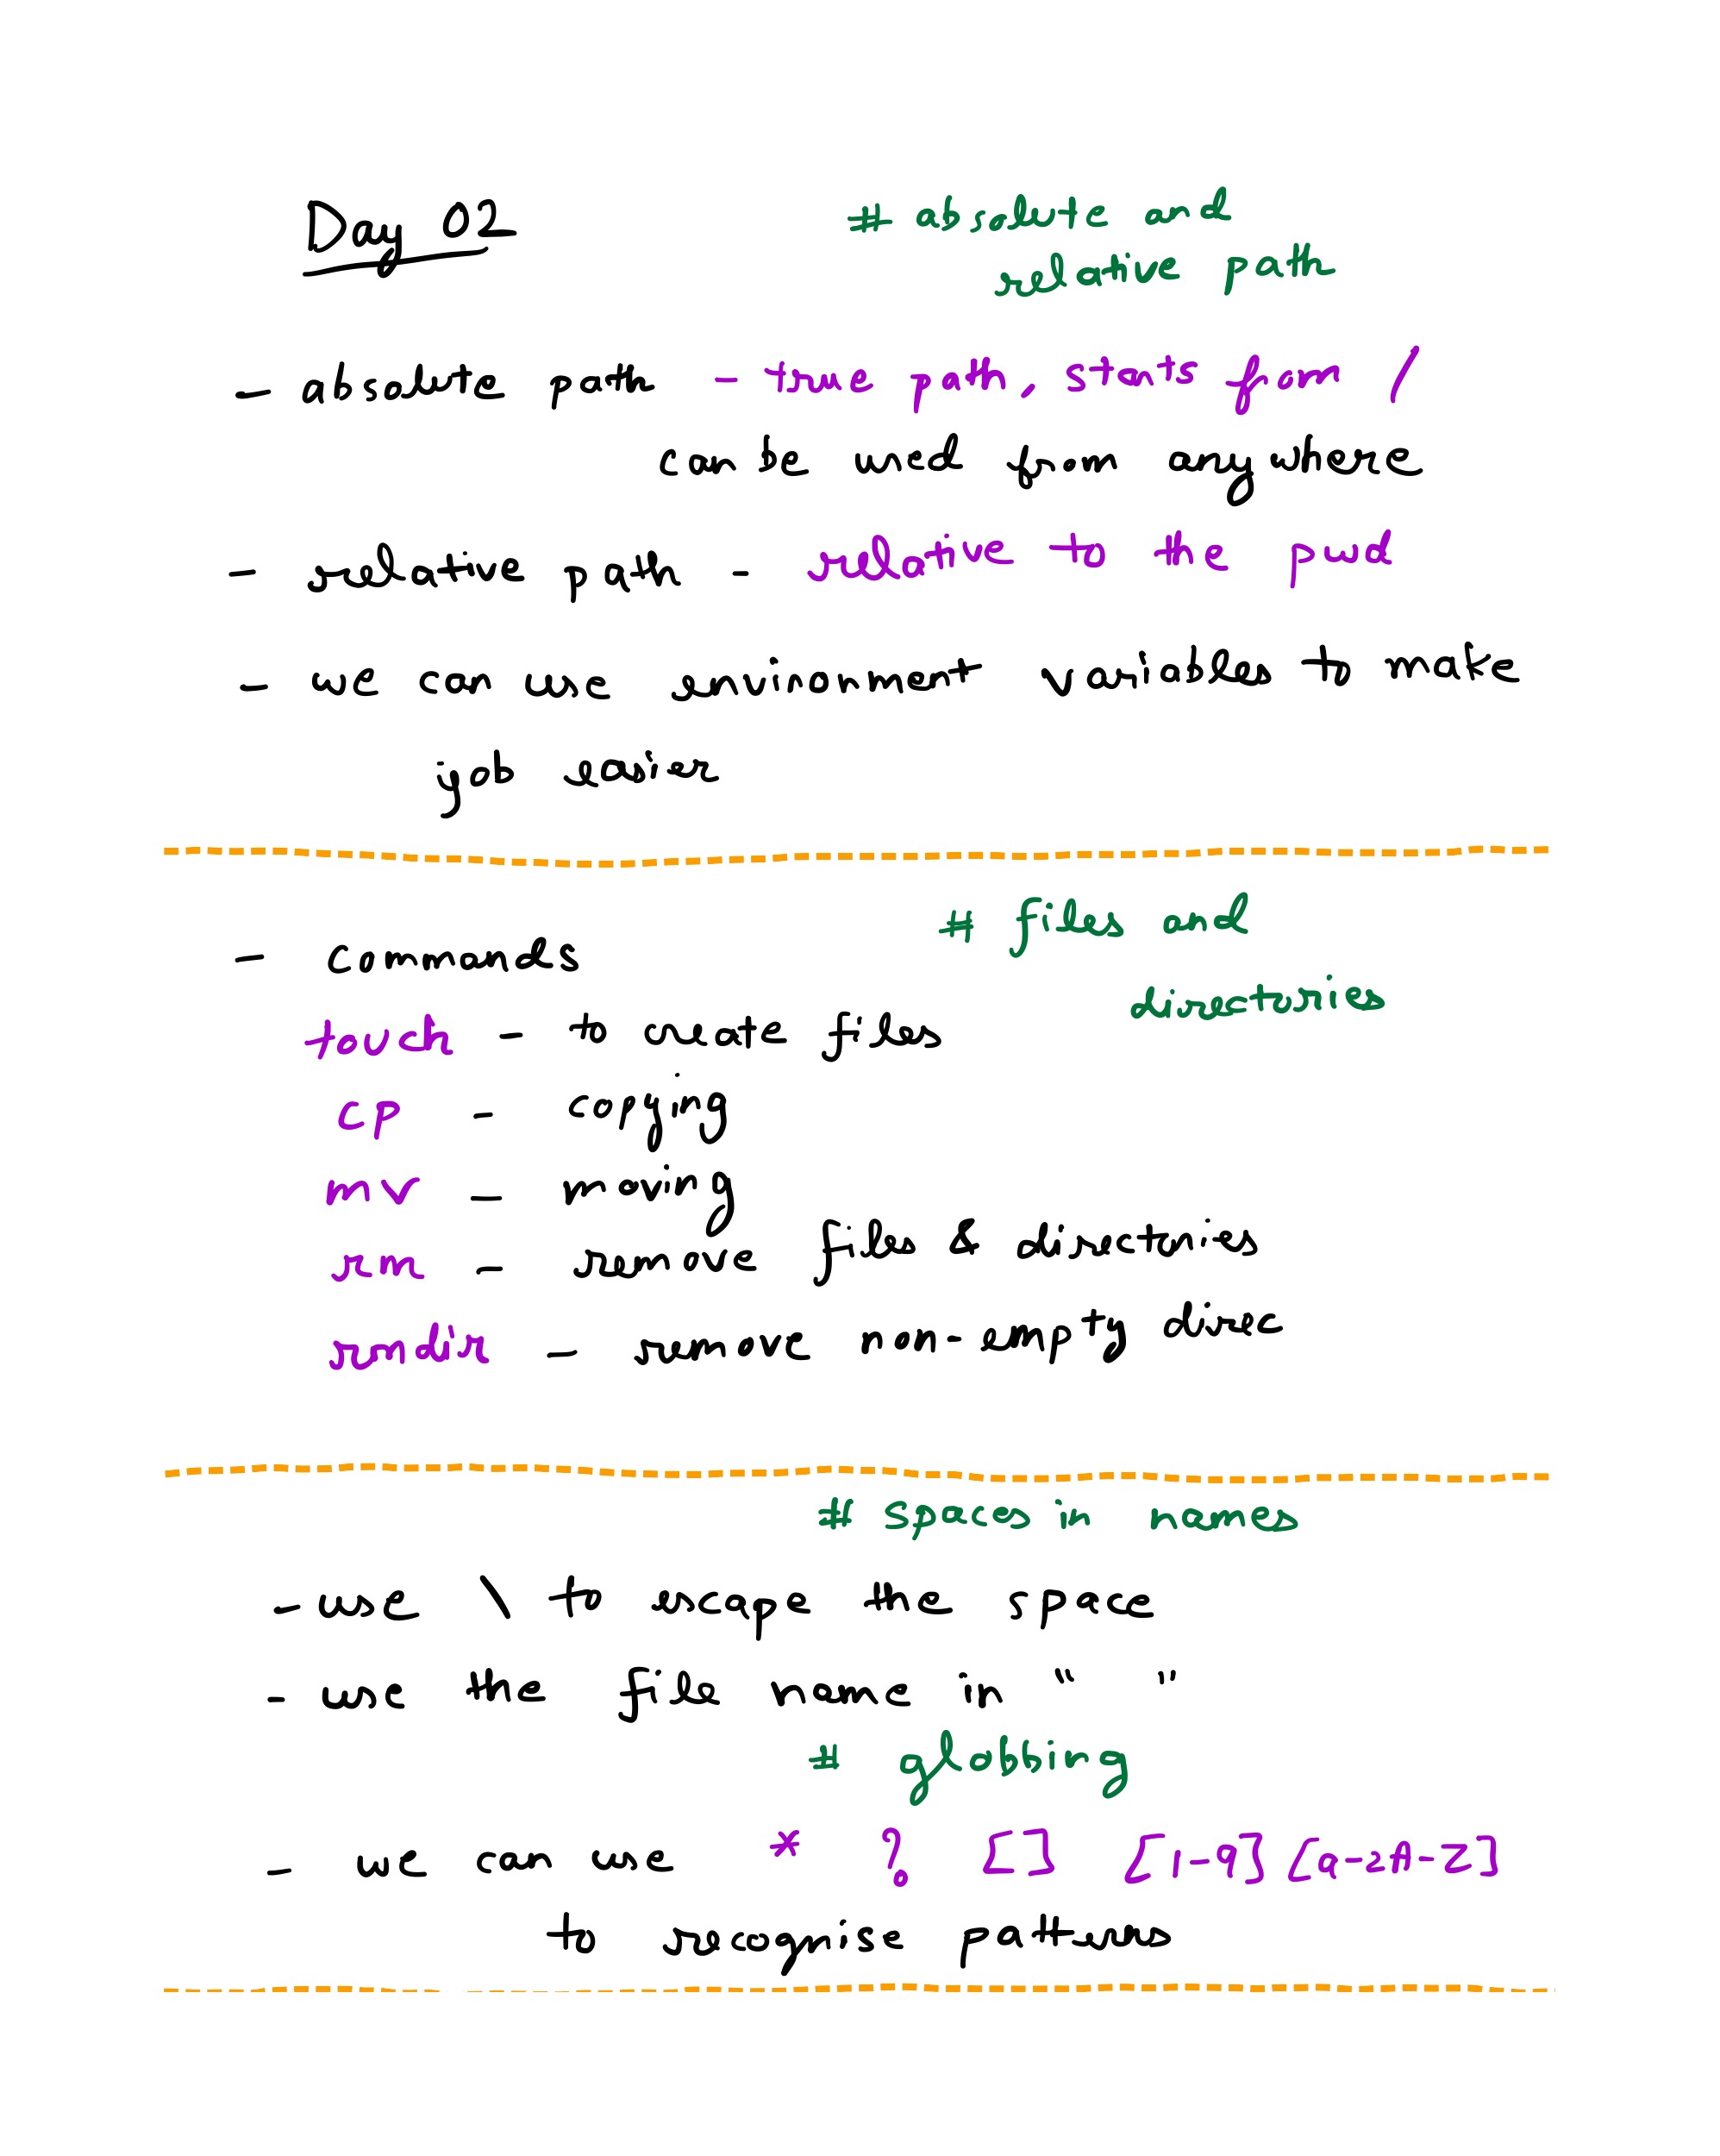 Day 02
# absolute and
relative path
- absolute path - true path, starts form /
can be used from anywhere
- relative path - relative to the pwd
- we can use environment variables to make
job easier
# files and
directories
- commands
touch - to create files
cp - copying
mv - moving
rm - remove files & directories
rmdir - remove non-empty direc
# spaces in names
- use \ to escape the space
- use the file name in " "
# globbing
- we can use * ? [] [1-9] [a-zA-Z]
to recognise patterns